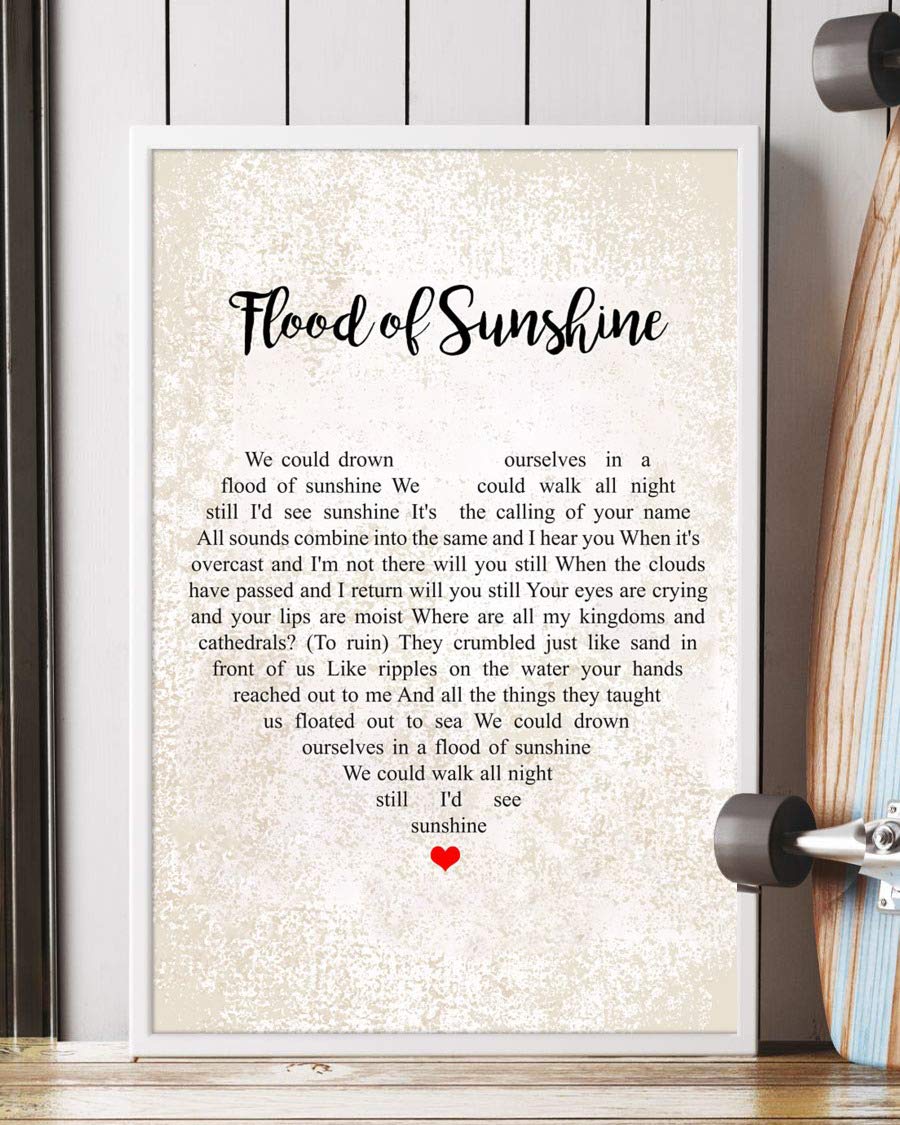 Flood of Sunshine
We could drown ourselves in a
flood of sunshine We could walk all night
still I'd see sunshine It's the calling of your name
All sounds combine into the same and I hear you When it's
overcast and I'm not there will you still When the clouds
have passed and I return will you still Your eyes are crying
and your lips are moist Where are all my kingdoms and
cathedrals? (To ruin) They crumbled just like sand in
front of us Like ripples on the water your hands
reached out to me And all the things they taught
us floated out to sea We could drown
ourselves in a flood of sunshine
We could walk all night
still I'd see
sunshine